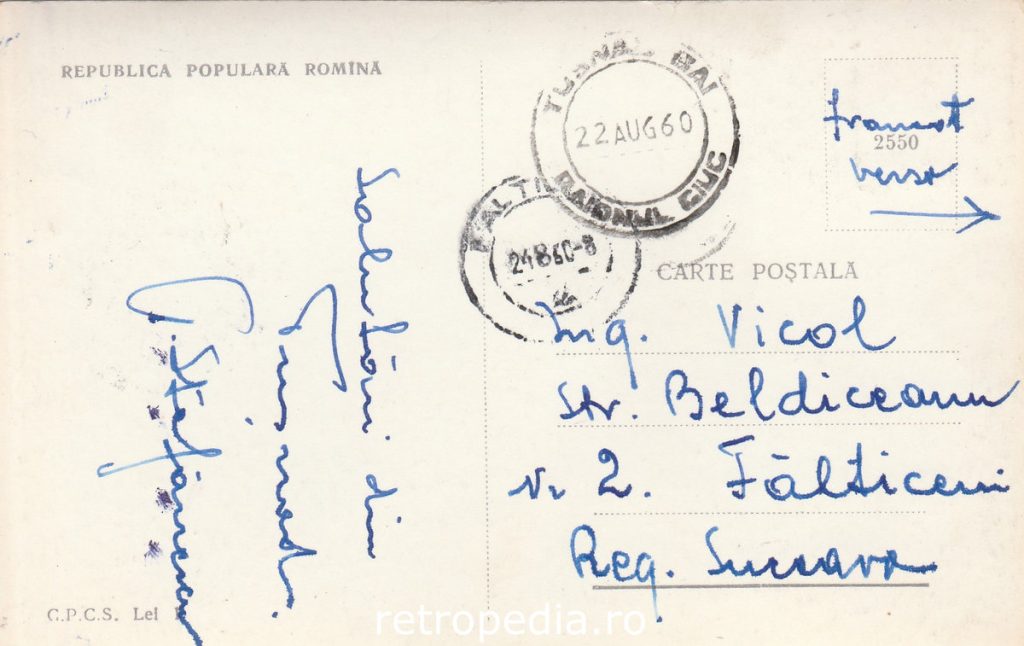 REPUBLICA POPULARĂ ROMÎNĂ
TUȘNAD BĂI
22 AUG 60
RAIONUL CIUC
FĂLTI
24 8 60-8
francat
2550
verso
CARTE POȘTALĂ
Ing. Vicol
Str. Beldiceanu
Nr 2. Fălticeni
Reg. Suceava
Salutări din
Tușnad.
G. Ștefănescu
C.P.C.S. Lei
retropedia.ro